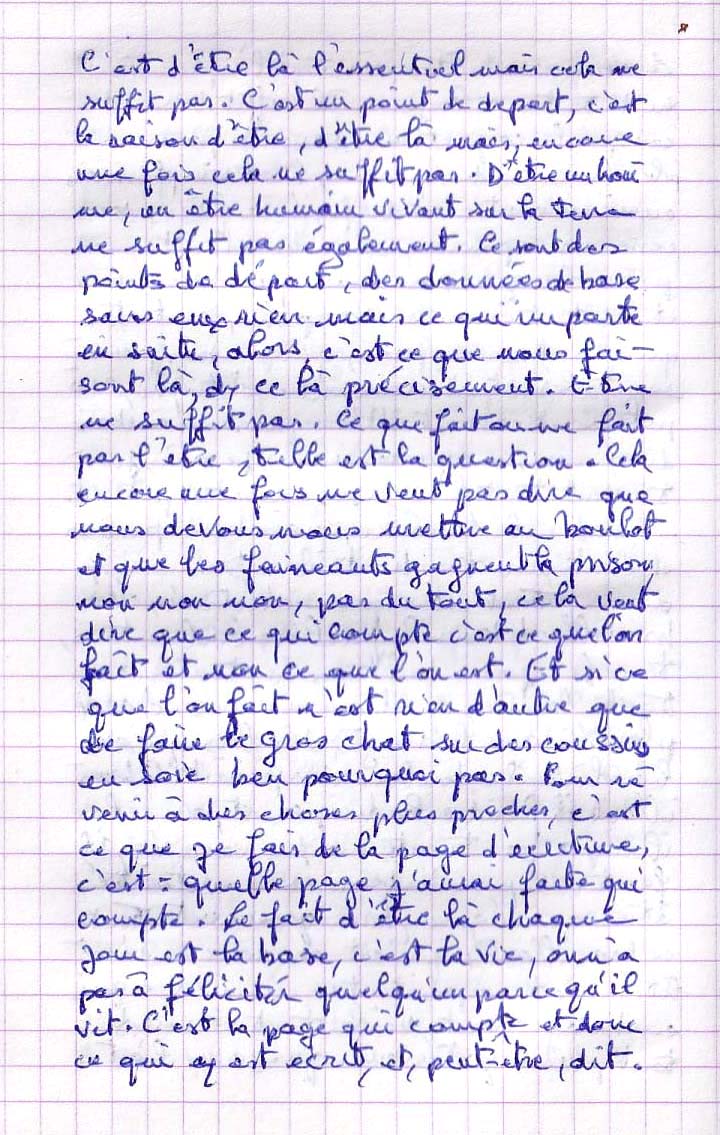 C'est d'être là l'essentiel mais cela ne
suffit pas. C'est un point de depart, c'est
la raison d'être, d'être là mais, encore
une fois cela ne suffit pas. D'être un hom
me, un être humain vivant sur la terre
ne suffit pas également. Ce sont des
points de départ, des données de base
sans eux rien mais ce qui importe
en suite, alors, c'est ce que nous fai-
sont là, de ce là précisément. Etre
ne suffit pas. Ce que fait ou ne fait
pas l'être, telle est la question. Cela
encore une fois ne veut pas dire que
nous devons nous mettre au boulot
et que les faineants gagnent la prison,
non non non, pas du tout, cela veut
dire que ce qui compte c'est ce que l'on
fait et non ce que l'on est. Et si ce
que l'on fait n'est rien d'autre que
de faire le gros chat sur des coussins
en soie ben pourquoi pas. Pour re
venir à des choses plus proches, c'est
ce que je fais de la page d'écriture,
c'est = quelle page j'aurai faite qui
compte. Le fait d'être là chaque
jour est la base, c'est la vie, on n'a
pas à féliciter quelqu'un parce qu'il
vit. C'est la page qui compte et donc
ce qui y est ecrit, et, peut-être, dit.